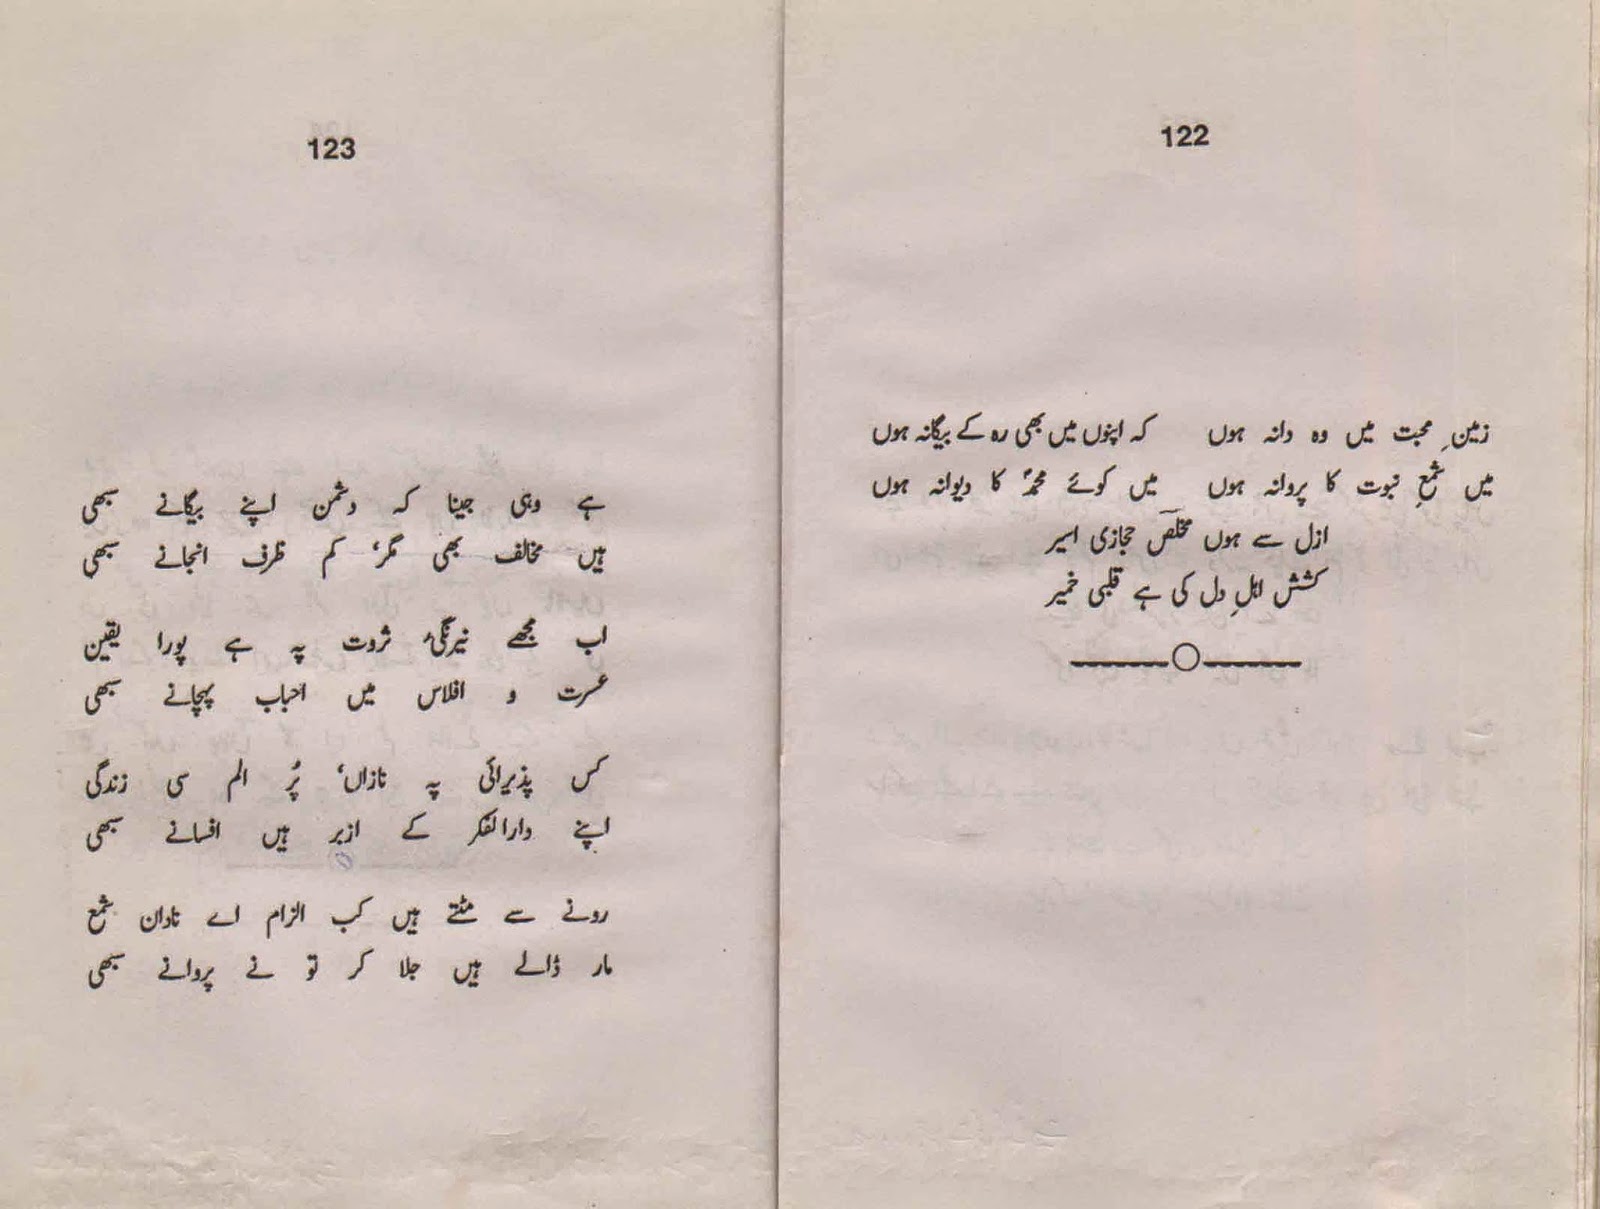 122
زمینِ محبت میں وہ دانہ ہوں کہ اپنوں میں بھی رہ کے بیگانہ ہوں
میں شمعِ نبوت کا پروانہ ہوں میں کوئے محمدؐ کا دیوانہ ہوں
ازل سے ہوں مخلصؔ حجازی اسیر
کشش اہلِ دل کی ہے قلبی خمیر
123
ہے وہی جینا کہ دشمن اپنے بیگانے سبھی
ہیں مخالف بھی مگر، کم ظرف انجانے سبھی
اب مجھے نیرنگیٔ ثروت پہ ہے پورا یقین
عسرت و افلاس میں احباب پہچانے سبھی
کس پذیرائی پہ نازاں، پُر الم سی زندگی
اپنے دارالفکر کے ازبر ہیں افسانے سبھی
رونے سے مٹتے ہیں کب الزام اے نادان شمع
مار ڈالے ہیں جلا کر تو نے پروانے سبھی